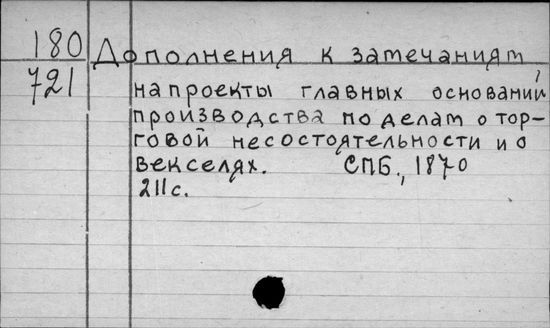 180 Дополнения к замечаниям
721 на проекты главных оснований
производства по делам о тор-
говой несостоятельности и о
векселях. СПБ., 1870
211 с.